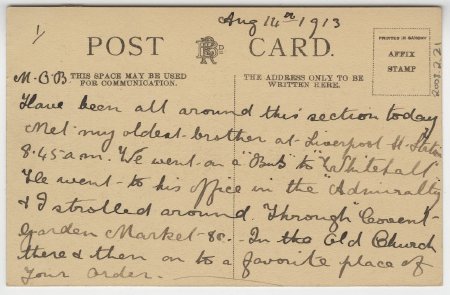 Aug 14th 1913
1/
POST CARD.
PRINTED IN SAXONY
AFFIX
STAMP
2003.2.21
M.O.B.
THIS SPACE MAY BE USED
FOR COMMUNICATION.
THE ADDRESS ONLY TO BE
WRITTEN HERE.
Have been all around this section today
Met my oldest brother at Liverpool St Station
8.45 a.m. We went on a "Bus" to "Whitehall"
He went to his office in the "Admiralty"
& I strolled around. Through "Covent-
Garden Market &c. - In the Old Church
there & then on to a favorite place of
Your Order.